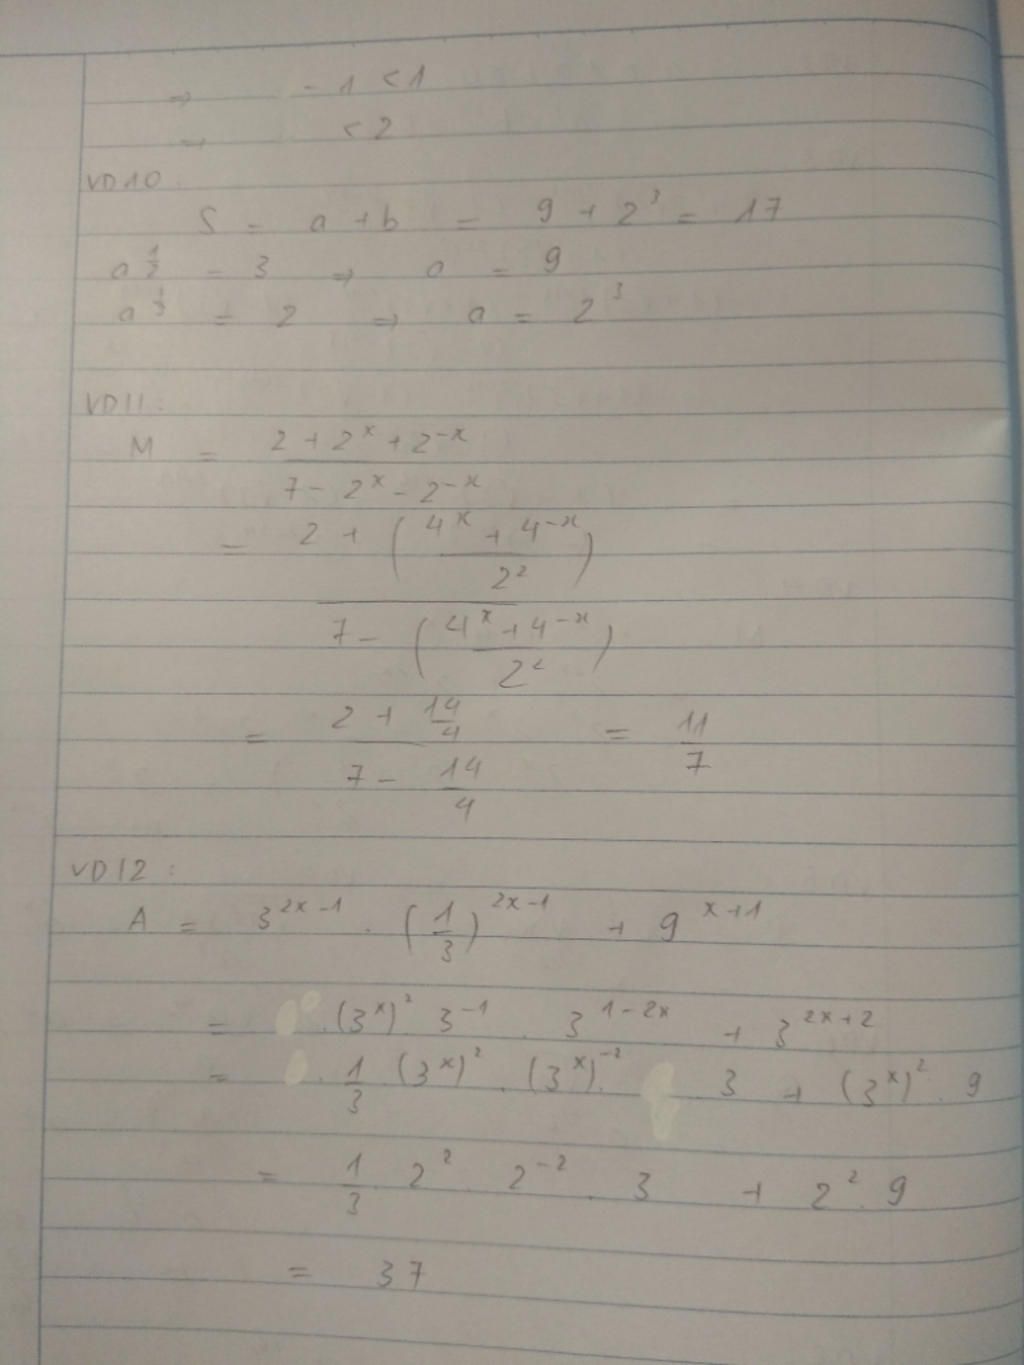 ⇒ - 1 < 1
⇒ < 2
VD10
S = a + b = 9 + 2³ = 17
a^{1/2} = 3 ⇒ a = 9
a^{1/3} = 2 ⇒ a = 2³
VD11:
M = \frac{2 + 2^x + 2^{-x}}{7 - 2^x - 2^{-x}}
= \frac{2 + (\frac{4^x + 4^{-x}}{2^2})}{7 - (\frac{4^x + 4^{-x}}{2^2})}
= \frac{2 + \frac{14}{4}}{7 - \frac{14}{4}} = \frac{11}{7}
VD12:
A = 3^{2x-1} . (\frac{1}{3})^{2x-1} + 9^{x+1}
= . (3^x)² 3^{-1} . 3^{1-2x} + 3^{2x+2}
= . \frac{1}{3} . (3^x)² . (3^x)^{-2} 3 + (3^x)² . 9
= \frac{1}{3} . 2² . 2^{-2} . 3 + 2² . 9
= 37